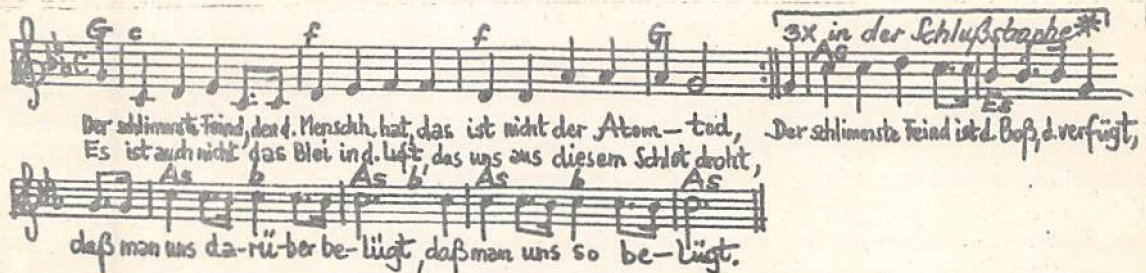 3x in der Schlußstrophe *
G c f f G As Es
Der schlimmste Feind, den d. Menschh. hat, das ist nicht der Atom-tod, Der schlimmste Feind ist d. Boß, d. verfügt,
Es ist auch nicht das Blei in d. Luft, das uns aus diesem Schlot droht,
As b As b As b As
daß man uns da-rü-ber be-lügt, daß man uns so be-lügt.